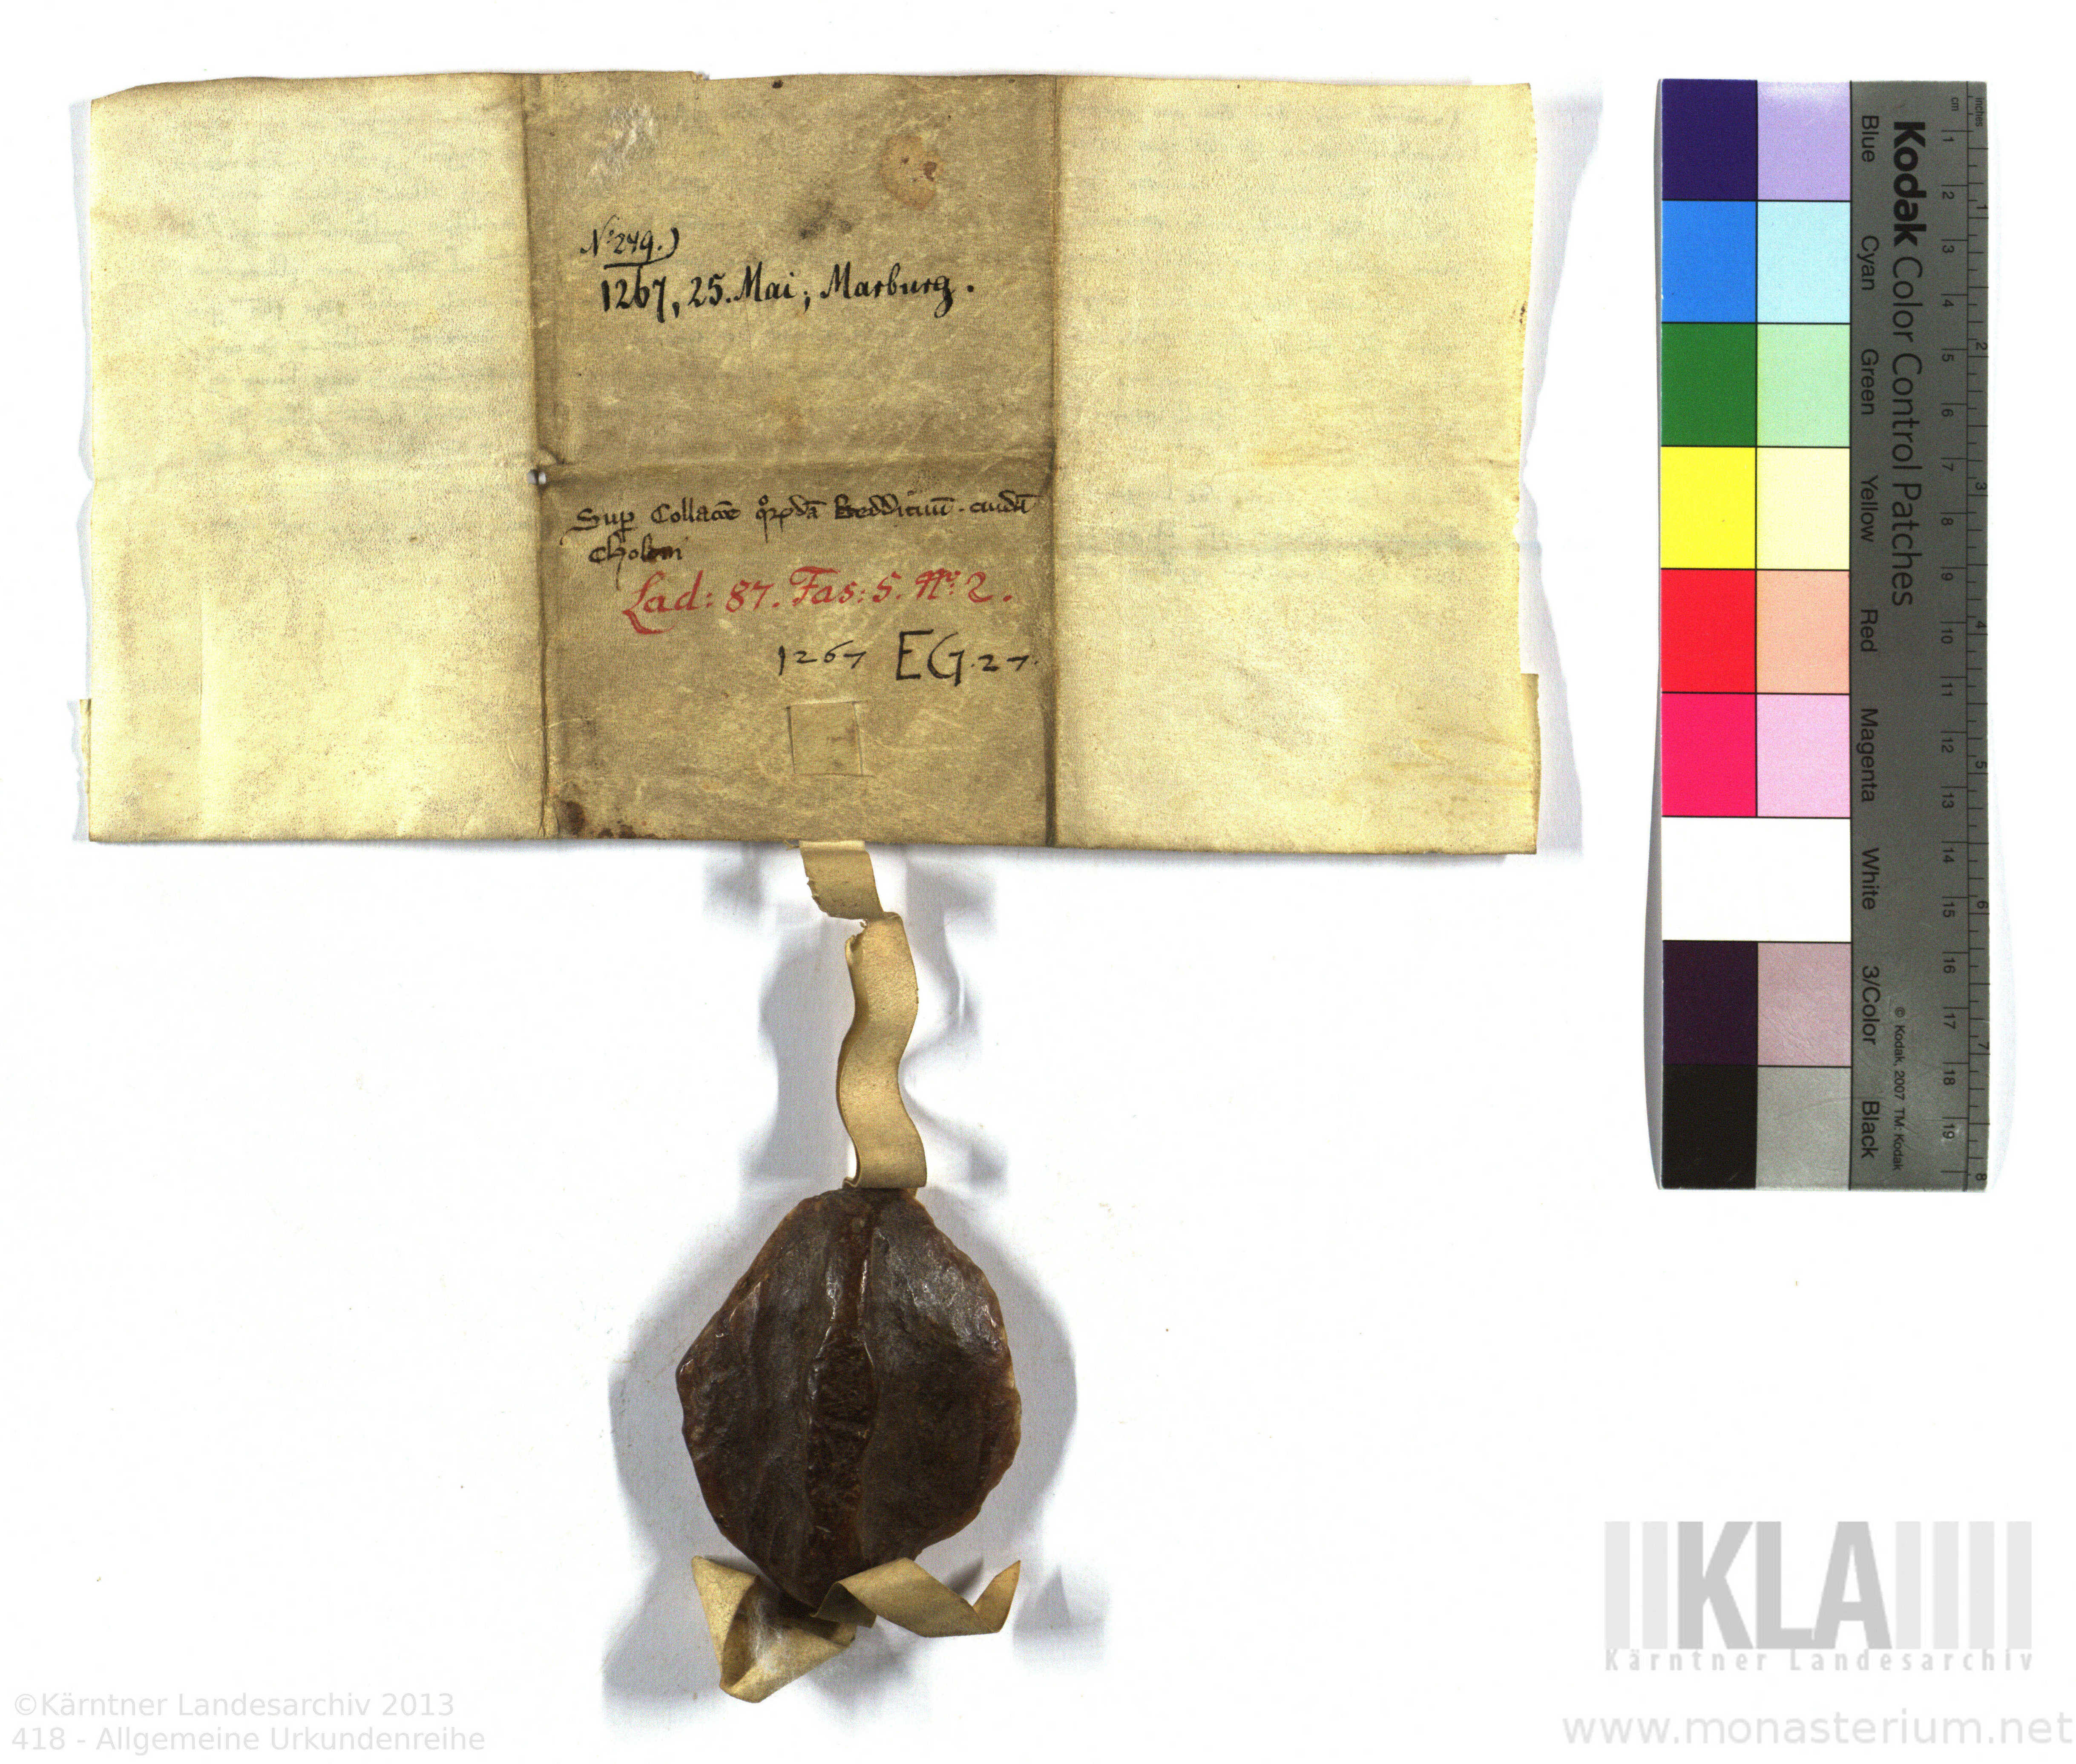 Nº 249.)
1267, 25. Mai; Marburg.
Sup Collacōe q̊rūdā Reddituū . cuidā
Cholom
Lad: 87. Fas: 5. Nº. 2.
1267 EG. 27.
Kodak Color Control Patches
Blue Cyan Green Yellow Red Magenta White 3/Color Black
© Kodak, 2007 TM: Kodak
cm 1 2 3 4 5 6 7 8 9 10 11 12 13 14 15 16 17 18 19
inches 1 2 3 4 5 6 7 8
KLA
Kärntner Landesarchiv
©Kärntner Landesarchiv 2013
418 - Allgemeine Urkundenreihe
www.monasterium.net